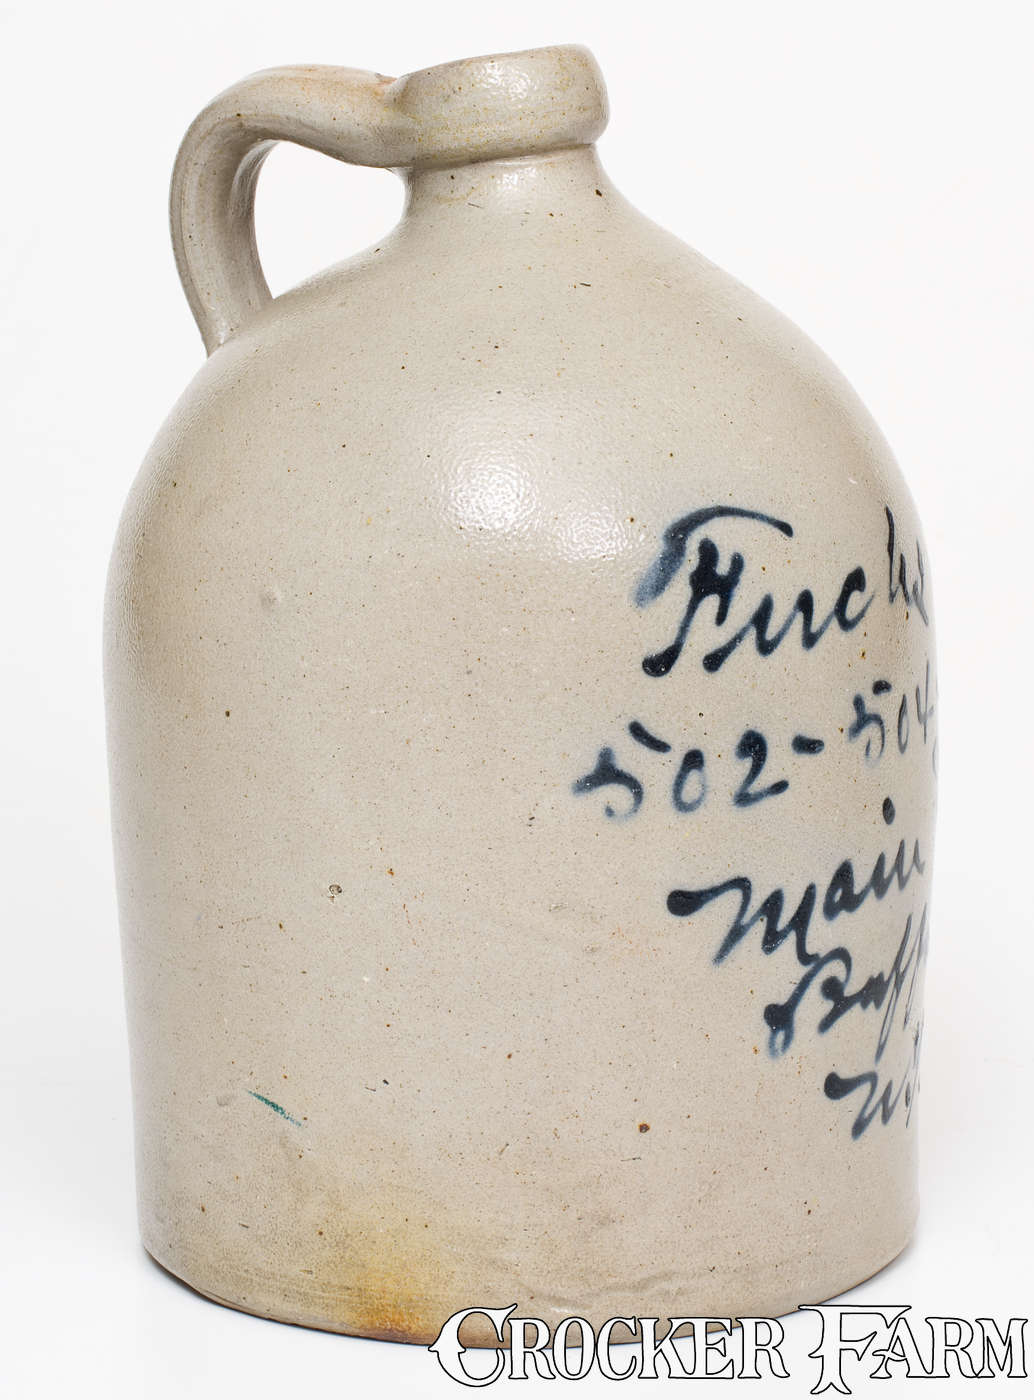 Fuchs
502-504
Main
Buff
CROCKER FARM